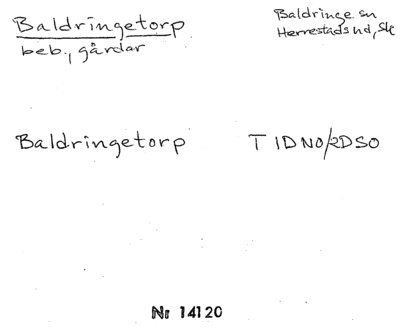 Baldringetorp
beb., gårdar
Baldringe sn
Herrestads hd, Sk
Baldringetorp T 1DNO/2DSO
Nr 14120